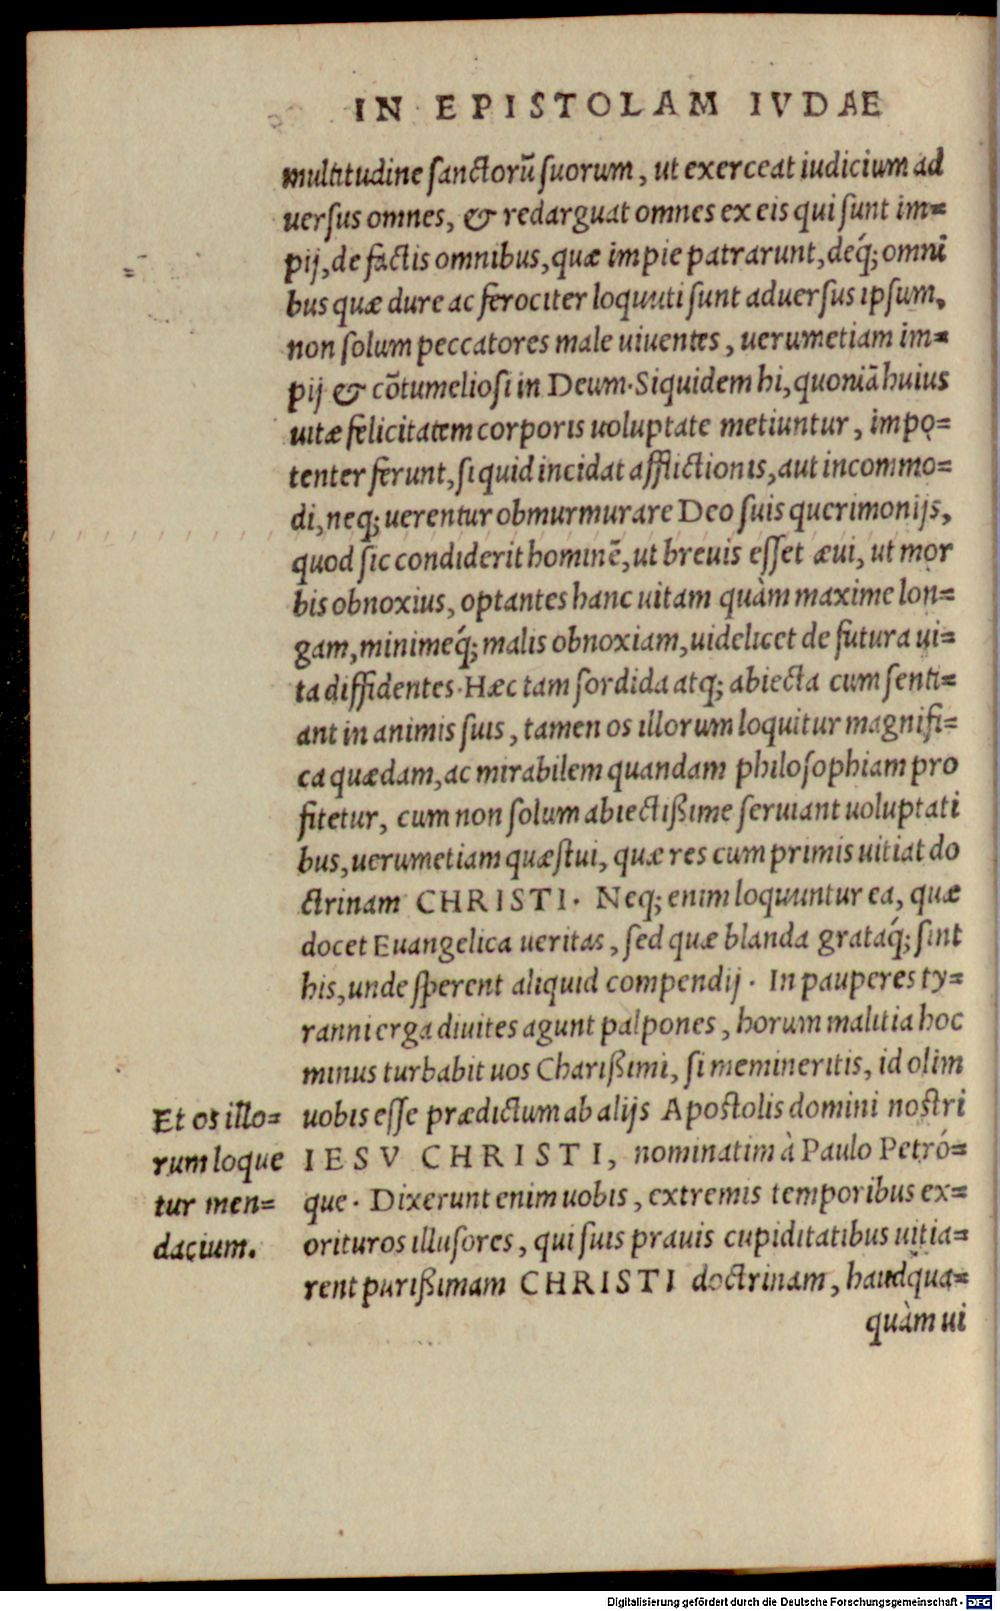 IN EPISTOLAM IVDAE
multitudine sanctorũ suorum, ut exerceat iudicium ad
uersus omnes, & redarguat omnes ex eis qui sunt im=
pij, de factis omnibus, quæ impie patrarunt, deq́; omni
bus quæ dure ac ferociter loquuti sunt aduersus ipsum,
non solum peccatores male uiuentes, uerumetiam im=
pij & cõtumeliosi in Deum. Siquidem hi, quoniã huius
uitæ felicitatem corporis uoluptate metiuntur, impo=
tenter ferunt, si quid incidat afflictionis, aut incommo=
di, neq; uerentur obmurmurare Deo suis querimonijs,
quod sic condiderit hominẽ, ut breuis esset æui, ut mor
bis obnoxius, optantes hanc uitam quàm maxime lon=
gam, minimeq́; malis obnoxiam, uidelicet de futura ui=
ta diffidentes. Hæc tam sordida atq; abiecta cum senti=
ant in animis suis, tamen os illorum loquitur magnifi=
ca quædam, ac mirabilem quandam philosophiam pro
fitetur, cum non solum abiectißime seruiant uoluptati
bus, uerumetiam quæstui, quæ res cum primis uitiat do
ctrinam CHRISTI. Neq; enim loquuntur ea, quæ
docet Euangelica ueritas, sed quæ blanda grataq́; sint
his, unde sperent aliquid compendij. In pauperes ty=
ranni erga diuites agunt palpones, horum malitia hoc
minus turbabit uos Charißimi, si memineritis, id olim
uobis esse prædictum ab alijs Apostolis domini nostri
IESV CHRISTI, nominatim à Paulo Petró=
que. Dixerunt enim uobis, extremis temporibus ex=
orituros illusores, qui suis prauis cupiditatibus uitia=
rent purißimam CHRISTI doctrinam, haudqua=
quàm ui
Et os illo=
rum loque
tur men=
dacium.
Digitalisierung gefördert durch die Deutsche Forschungsgemeinschaft - DFG